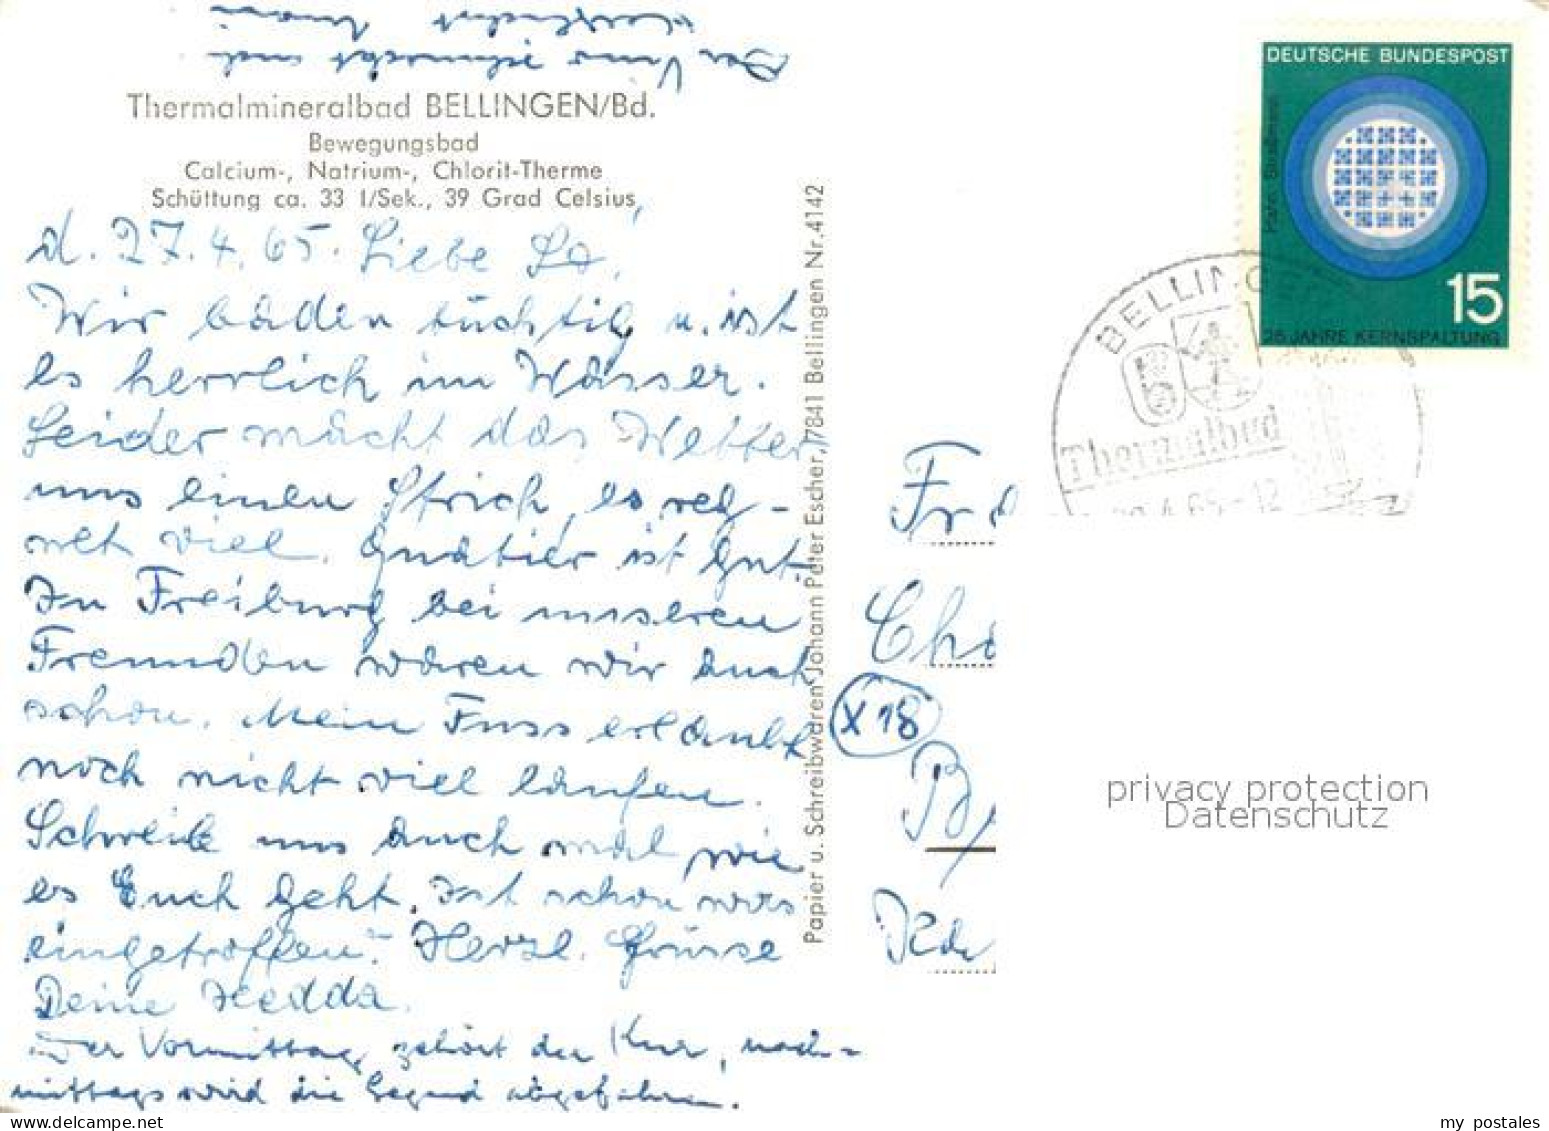 Thermalmineralbad BELLINGEN/Bd.
Bewegungsbad
Calcium-, Natrium-, Chlorit-Therme
Schüttung ca. 33 l/Sek., 39 Grad Celsius
d. 27.4.65. Liebe
Wir baden tüchtig u. ist
es herrlich im Wasser.
Leider macht das Wetter
uns einen Strich, es reg-
net viel. Quatier ist gut.
In Freiburg bei unseren
Freunden waren wir auch
schon. Mein Fuss erlaubt
noch nicht viel laufen.
Schreibe uns auch mal wie
es Euch geht. Ist schon was
eingetroffen? Herzl. Grüsse
Deine Hedda.
Der Vormittag gehört der Kur, nach-
mittags wird die Gegend abgefahren.
Der Vino schmeckt auch
Papier u. Schreibwaren Johann Peter Escher, 7841 Bellingen Nr. 4142
DEUTSCHE BUNDESPOST
15
25 JAHRE KERNSPALTUNG
BELLING
Thermalbad
4.65-12
Fr
Cha
X 18
B
privacy protection
Datenschutz
my postales